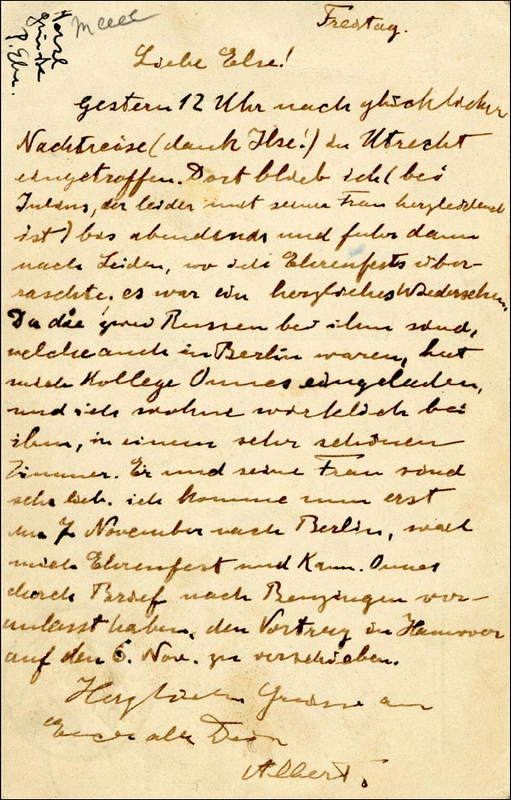 Freitag.
Liebe Else!
Gestern 12 Uhr nach glücklicher
Nachtreise (dank Ilse!) in Utrecht
eingetroffen. Dort blieb ich (bei
Julius, der leider mit seiner Frau
ist) bis abends und fuhr dann
nach Leiden, wo ich Ehrenfests über-
raschte; es war ein herzliches Wiedersehen.
Da die zwei Russen bei ihm sind,
welche auch in Berlin waren, hat
mich Kollege Onnes eingeladen,
und ich wohne wirklich bei
ihm, in einem sehr schönen
Zimmer. Er und seine Frau sind
sehr lieb. ich komme nun erst
am 7. November nach Berlin, weil
mich Ehrenfest und Kam. Onnes
durch Brief nach Benzingen ver-
anlasst haben, den Vortrag in Hannover
auf den 6. Nov. zu verschieben.
Herzliche Grüsse an
Euch alle Dein
Albert.